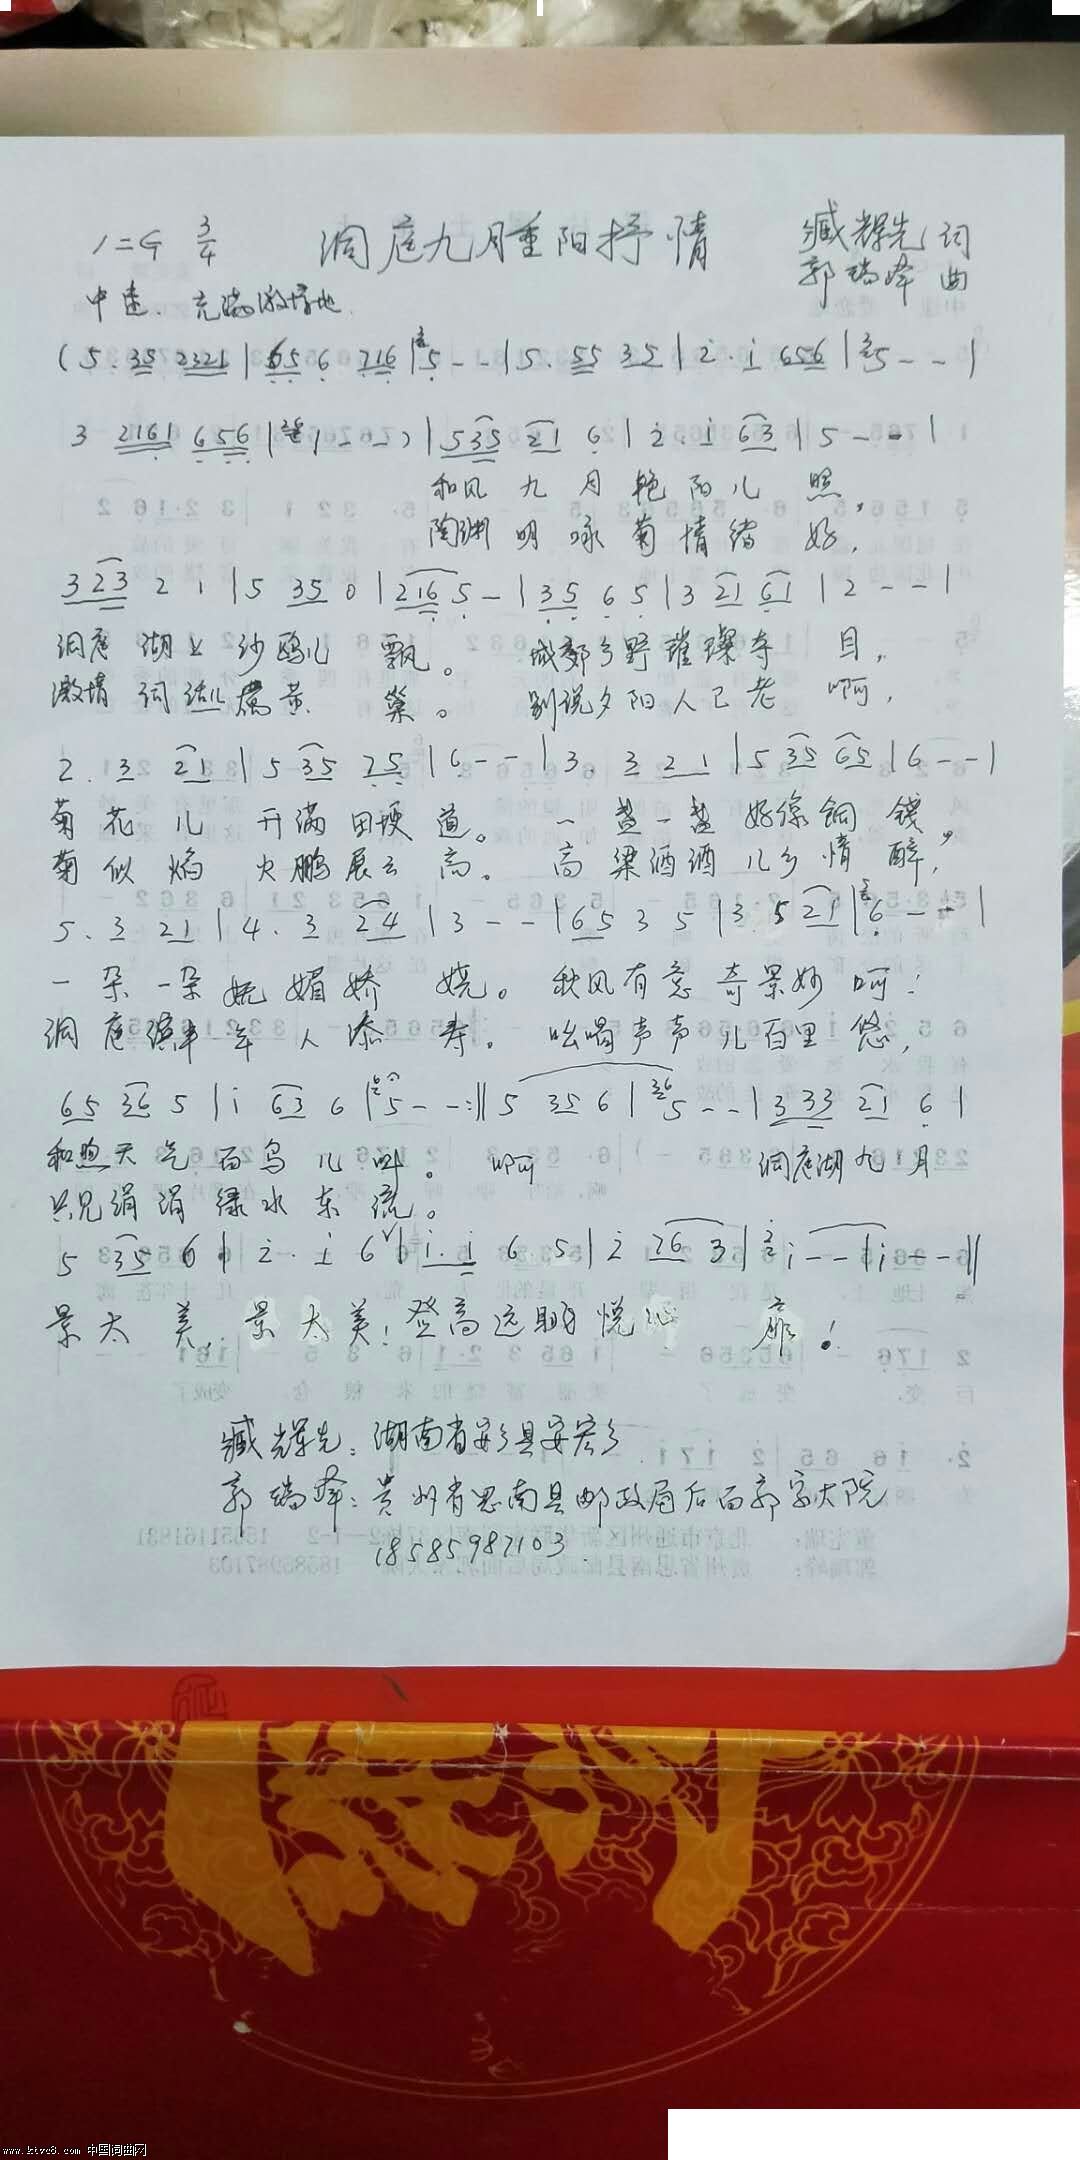 1=G 3/4 洞庭九月重阳抒情 臧辉先 词
郭瑞峰 曲
中速. 充满激情地
(5. 35 2321 | 656 716 | 5 - - | 5. 55 35 | 2. 1 656 | 5 - - |
3 2161 656 | 1 - - ) | 535 21 6 | 2. 1 63 | 5 - - |
和风九月艳阳儿照,
陶渊明咏菊情绪好,
323 2 1 | 5 35 0 | 216 5 - | 35 6 5 | 3 21 61 | 2 - - |
洞庭湖上沙鸥儿飘。 城郊乡野璀璨夺目,
激情词话儿赞黄巢。 别说夕阳人已老啊,
2. 3 21 | 5 35 75 | 6 - - | 3. 3 21 | 5 35 65 | 6 - - |
菊花儿开满田埂道。 一盏一盏好像铜钱,
菊似焰火鹏展云高。 高粱酒酒儿乡情醉,
5. 3 21 | 4. 3 24 | 3 - - | 65 3 5 | 3. 5 21 | 6 - - |
一朵一朵妩媚娇娆。 秋风有意奇景妙啊!
洞庭年年人添寿。 吆喝声声儿百里悠,
65 36 5 | 1 63 6 | 5 - - :|| 5 35 6 | 5 - - | 333 21 6 |
和煦天气百鸟儿叫。 啊 洞庭湖九月
只见涓涓绿水东流。
5 35 6 | 2. 1 6 | 1. 1 6. 5 | 2 76 3 | 1 - - | 1 - - ||
景太美,景太美!登高远眺悦心廊!
臧辉先: 湖南省安乡县安宏乡
郭瑞峰: 贵州省思南县邮政局后面郭家大院
18585987103
www.ktvc8.com 中国词曲网